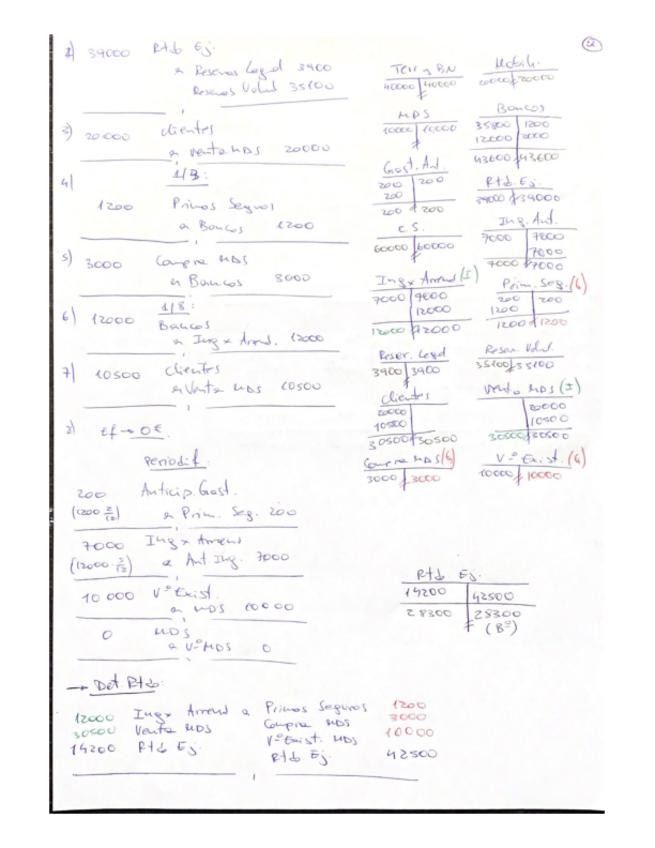 2
2) 39000 Rtdo Ej.
a Reservas Legal 3900
Reservas Volunt 35100
3) 20000 clientes
a venta MDS 20000
4) 1/3:
1200 Primas Seguros
a Bancos 1200
5) 3000 Compra MDS
a Bancos 3000
6) 1/8:
12000 Bancos
a Ing x Arrend. 12000
7) 10500 clientes
a Venta MDS 10500
2) Ef → 0€.
Periodif.
200 Anticip. Gast.
(1200 2/12) a Prim. Seg. 200
7000 Ing x Arrend
a Ant Ing. 7000
10 000 Vº Exist.
a MDS 10000
0 MDS
a Vº MDS 0
→ Det. Rtdo:
12000 Ing x Arrend a Primas Seguros 1200
30500 Venta MDS Compra MDS 3000
Vº Exist. MDS 10000
14200 Rtdo Ej. Rtdo Ej. 42500
Terr y BN Mobil.
40000 40000 20000 20000
MDS Bancos
10000 10000 35800 1200
12000 3000
43600 43600
Gast. Ant. Rtdo Ej
200 200 39000 39000
200
200 200
C.S. Ing. Ant.
60000 60000 7000 7000
7000
7000 7000
Ing x Arrend (I) Prim. Seg. (G)
7000 7000 200 200
12000 1200
12000 12000 1200 1200
Reser. Legal Reser. Volunt.
3900 3900 35100 35100
Clientes Venta MDS (I)
20000 20000
10500 10500
30500 30500 30500 30500
Compra MDS (G) Vº Exist. (G)
3000 3000 10000 10000
Rtdo Ej.
14200 42500
28300 28300
(Bº)